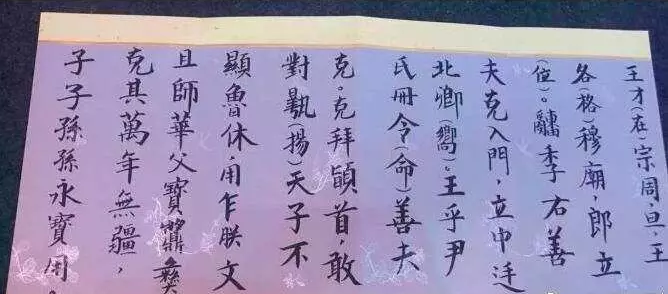 王才(在)宗周,旦,王
各(格)穆廟,郎立
(位)。䚄季右善
夫克入門,立中廷
北卿(嚮)。王乎尹
氏冊令(命)善夫
克。克拜䭫首,敢
對䫻(揚)天子不
顯魯休,用乍朕文
且師華父寶䵼彝
克其萬年無疆,
子子孫孫永寶用